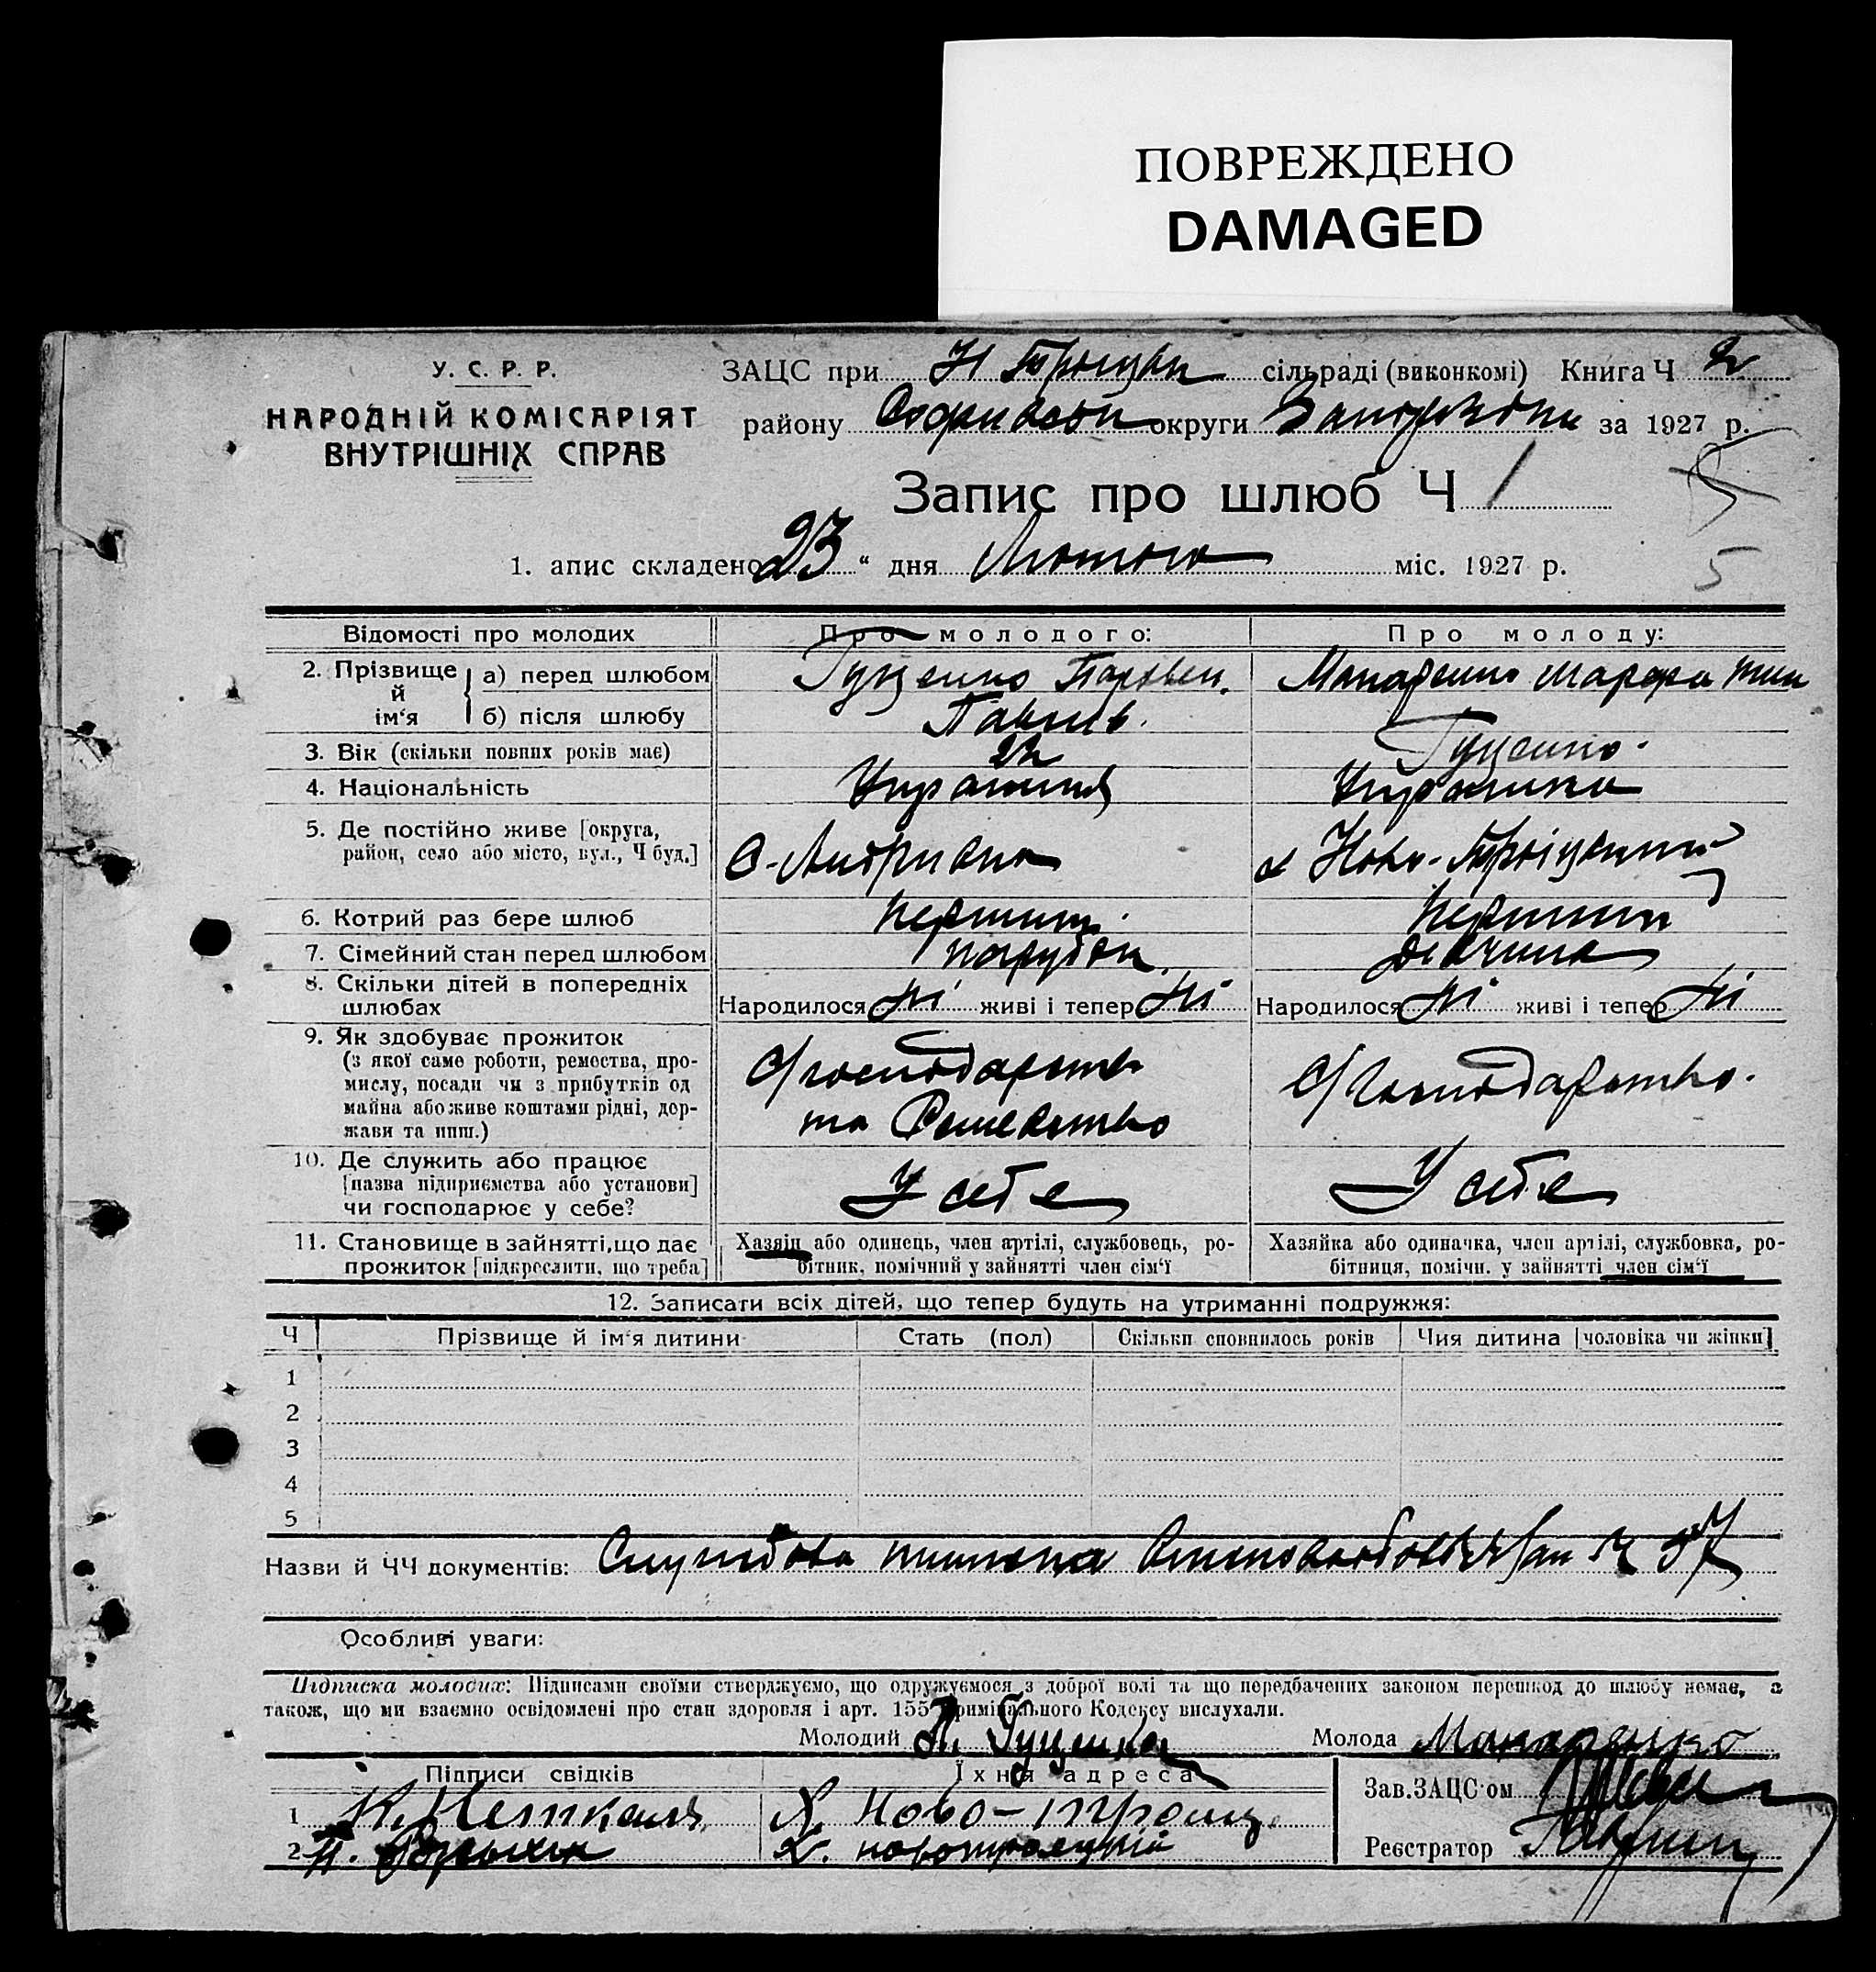 ПОВРЕЖДЕНО
DAMAGED
У. С. Р. Р.
НАРОДНІЙ КОМІСАРІЯТ
ВНУТРІШНІХ СПРАВ
ЗАЦС при Н сільраді (виконкомі) Книга Ч 2
району округи за 1927 р.
Запис про шлюб Ч 1
5
1. апис складено 23 “ дня Лютого міс. 1927 р.
5
Відомості про молодих
Про молодого:
Про молоду:
2. Прізвище й ім‘я
а) перед шлюбом
Гуценко
Макаренко Марфа
б) після шлюбу
Гуценко
3. Вік (скільки повних років має)
22
4. Національність
Українець
Українка
5. Де постійно живе [округа, район, село або місто, вул., Ч буд.]
х Ново-Троіцький
6. Котрий раз бере шлюб
перший
перший
7. Сімейний стан перед шлюбом
парубок
дівчина
8. Скільки дітей в попередніх шлюбах
Народилося ні живі і тепер ні
Народилося ні живі і тепер ні
9. Як здобуває прожиток
(з якої саме роботи, ремества, про-
мислу, посади чи з прибутків од
майна або живе коштами рідні, дер-
жави та инш.)
С/господарство
та
С/господарство.
10. Де служить або працює
[назва підприємства або установи]
чи господарює у себе?
У себе
У себе
11. Становище в зайнятті, що дає
прожиток [підкреслити, що треба]
Хазяїн або одинець, член артілі, службовець, ро-
бітник, помічний у зайнятті член сім‘ї
Хазяйка або одиначка, член артілі, службовка, ро-
бітниця, помічн. у зайнятті член сім‘ї
12. Записати всіх дітей, що тепер будуть на утриманні подружжя:
Ч Прізвище й ім‘я дитини Стать (пол) Скільки сповнилось років Чия дитина [чоловіка чи жінки]
1
2
3
4
5
Назви й ЧЧ документів:
Особливі уваги:
Підписка молодих: Підписами своїми стверджуємо, що одружуємося з доброї волі та що передбачених законом перешкод до шлюбу немає, а
також, що ми взаємно освідомлені про стан здоровля і арт. 155 Кримінального Кодексу вислухали.
Молодий Гуценко Молода Макаренко
Підписи свідків Їхня адреса Зав. ЗАЦС‘ом
1 Х. Ново-Троиц.
2 Х. Новотроецкий Реєстратор